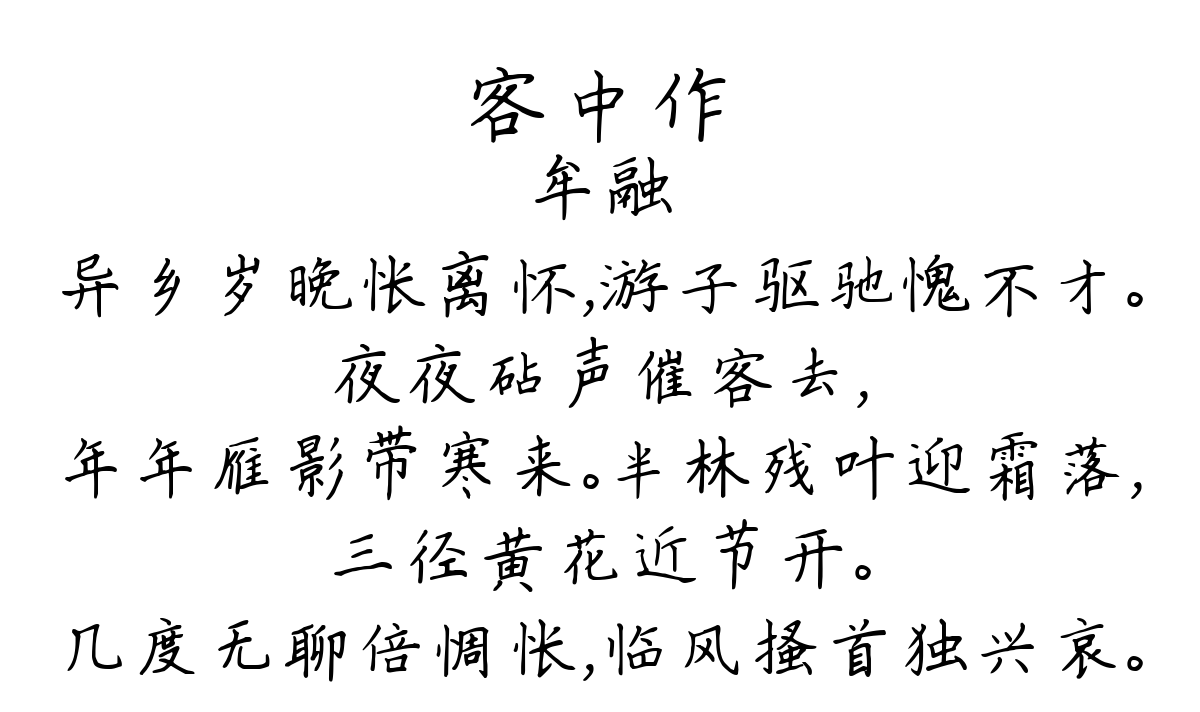 客中作
牟融
异乡岁晚怅离怀,游子驱驰愧不才。
夜夜砧声催客去,
年年雁影带寒来。半林残叶迎霜落,
三径黄花近节开。
几度无聊倍惆怅,临风搔首独兴哀。